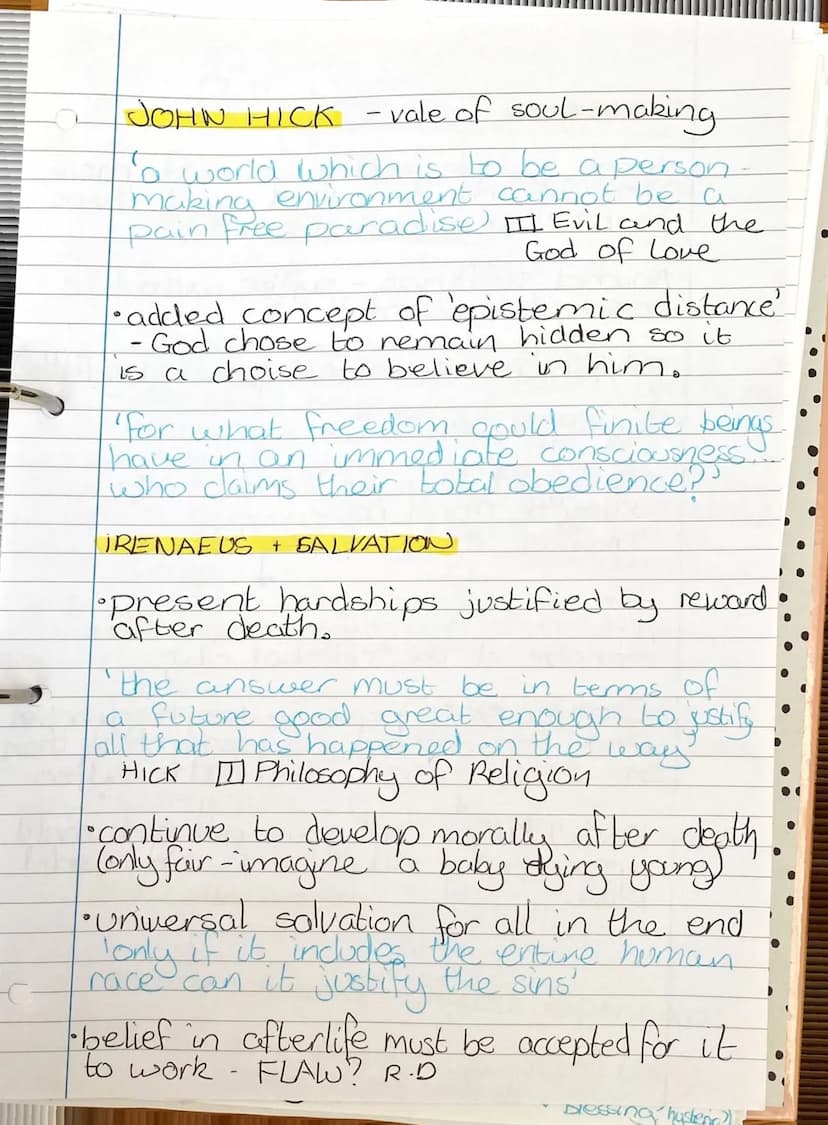 JOHN HICK - vale of soul-making
'a world which is to be a person-
making environment cannot be a
pain free paradise' Evil and the
God of Love
•added concept of 'epistemic distance'
- God chose to remain hidden so it
is a choise to believe in him.
'for what freedom could finite beings
have in an immediate consciousness...
who claims their total obedience?'
IRENAEUS + SALVATION
•present hardships justified by reward
after death.
'the answer must be in terms of
a future good great enough to justify
all that has happened on the way'
HICK Philosophy of Religion
•continue to develop morally after death
(only fair - imagine a baby dying young)
•universal salvation for all in the end
'only if it includes the entire human
race can it justify the sins'
•belief in afterlife must be accepted for it
to work - FLAW? R.D
blessing